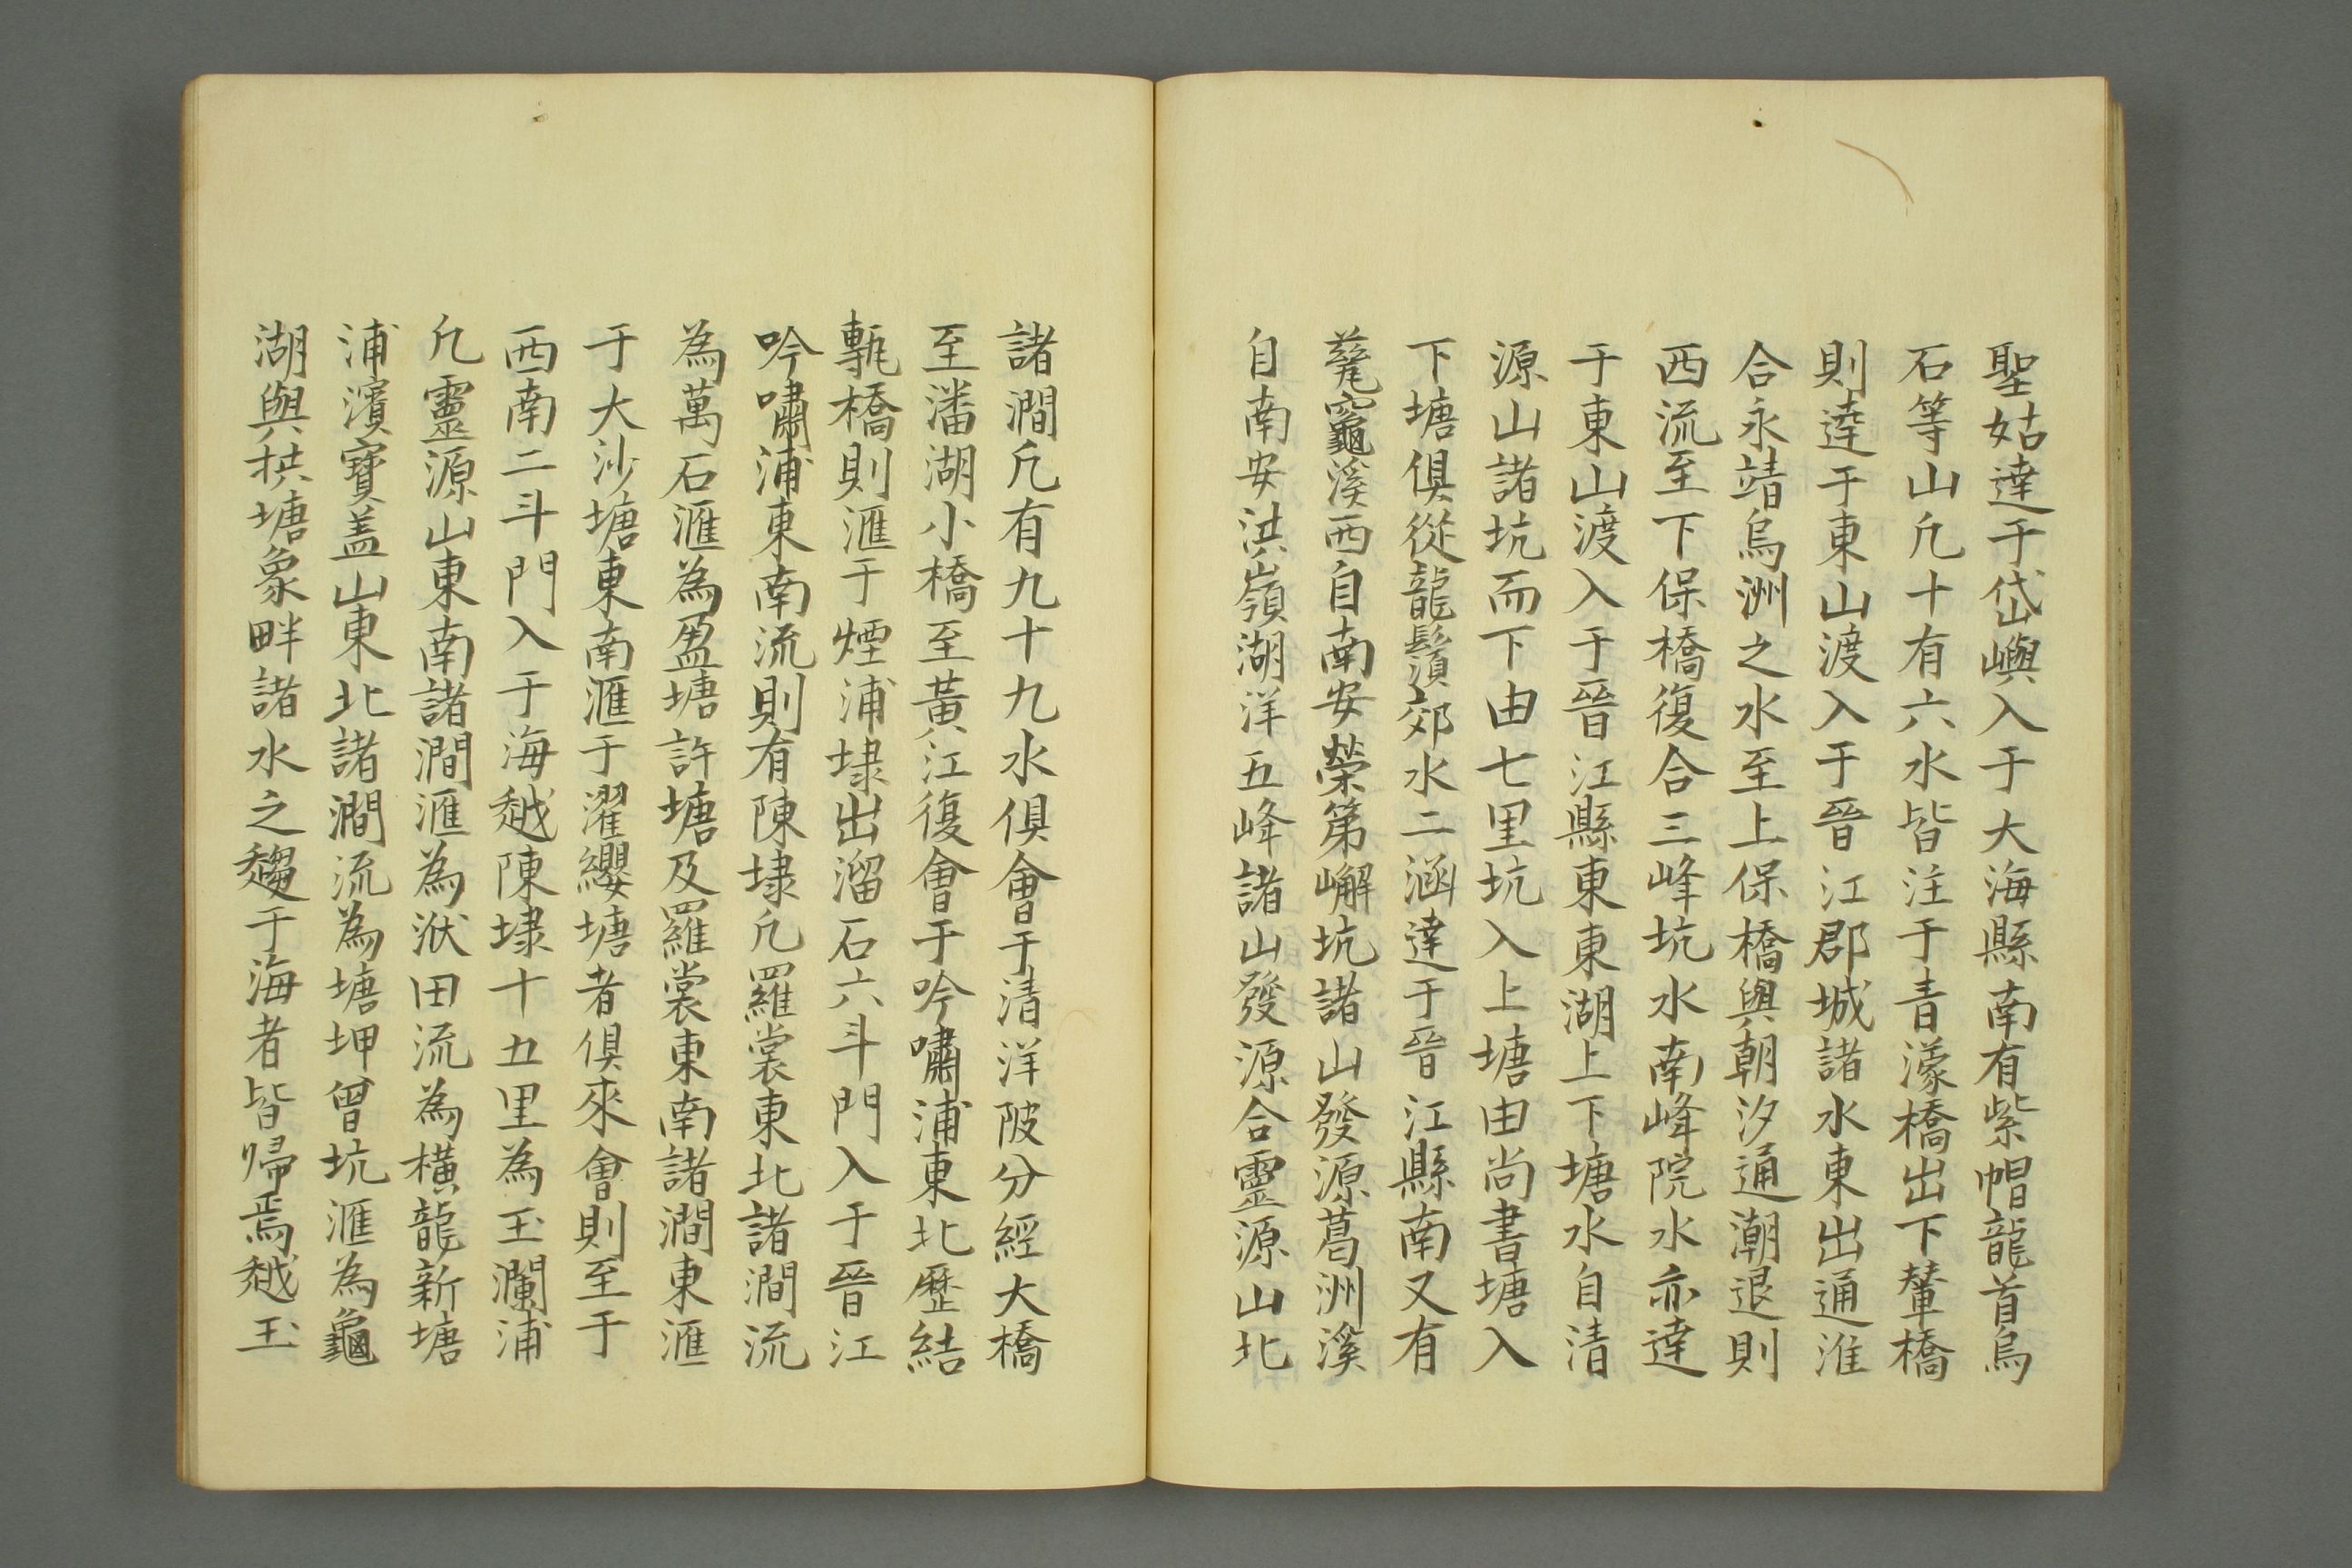 聖姑達于岱嶼入于大海縣南有紫帽龍首烏
石等山凢十有六水皆注于青濛橋出下輦橋
則達于東山渡入于晉江郡城諸水東出通淮
合永靖烏洲之水至上保橋與朝汐通潮退則
西流至下保橋復合三峰坑水南峰院水亦達
于東山渡入于晉江縣東東湖上下塘水自清
源山諸坑而下由七里坑入上塘由尚書塘入
下塘俱從龍鬚郊水二涵達于晉江縣南又有
竈溪西自南安榮第嶰坑諸山發源葛洲溪
自南安洪嶺湖洋五峰諸山發源合靈源山北
諸澗凢有九十九水俱會于清洋陂分經大橋
至潘湖小橋至黃江復會于吟嘯浦東北歷結
甎橋則滙于煙浦埭出溜石六斗門入于晉江
吟嘯浦東南流則有陳埭凢羅裳東北諸澗流
為萬石滙為盈塘許塘及羅裳東南諸澗東滙
于大沙塘東南滙于濯纓塘者俱來會則至于
西南二斗門入于海越陳埭十五里為玉瀾浦
凢靈源山東南諸澗滙為洑田流為橫龍新塘
浦濱寶盖山東北諸澗流為塘坤曾坑滙為龜
湖與拱塘象畔諸水之趨于海者皆歸焉越玉